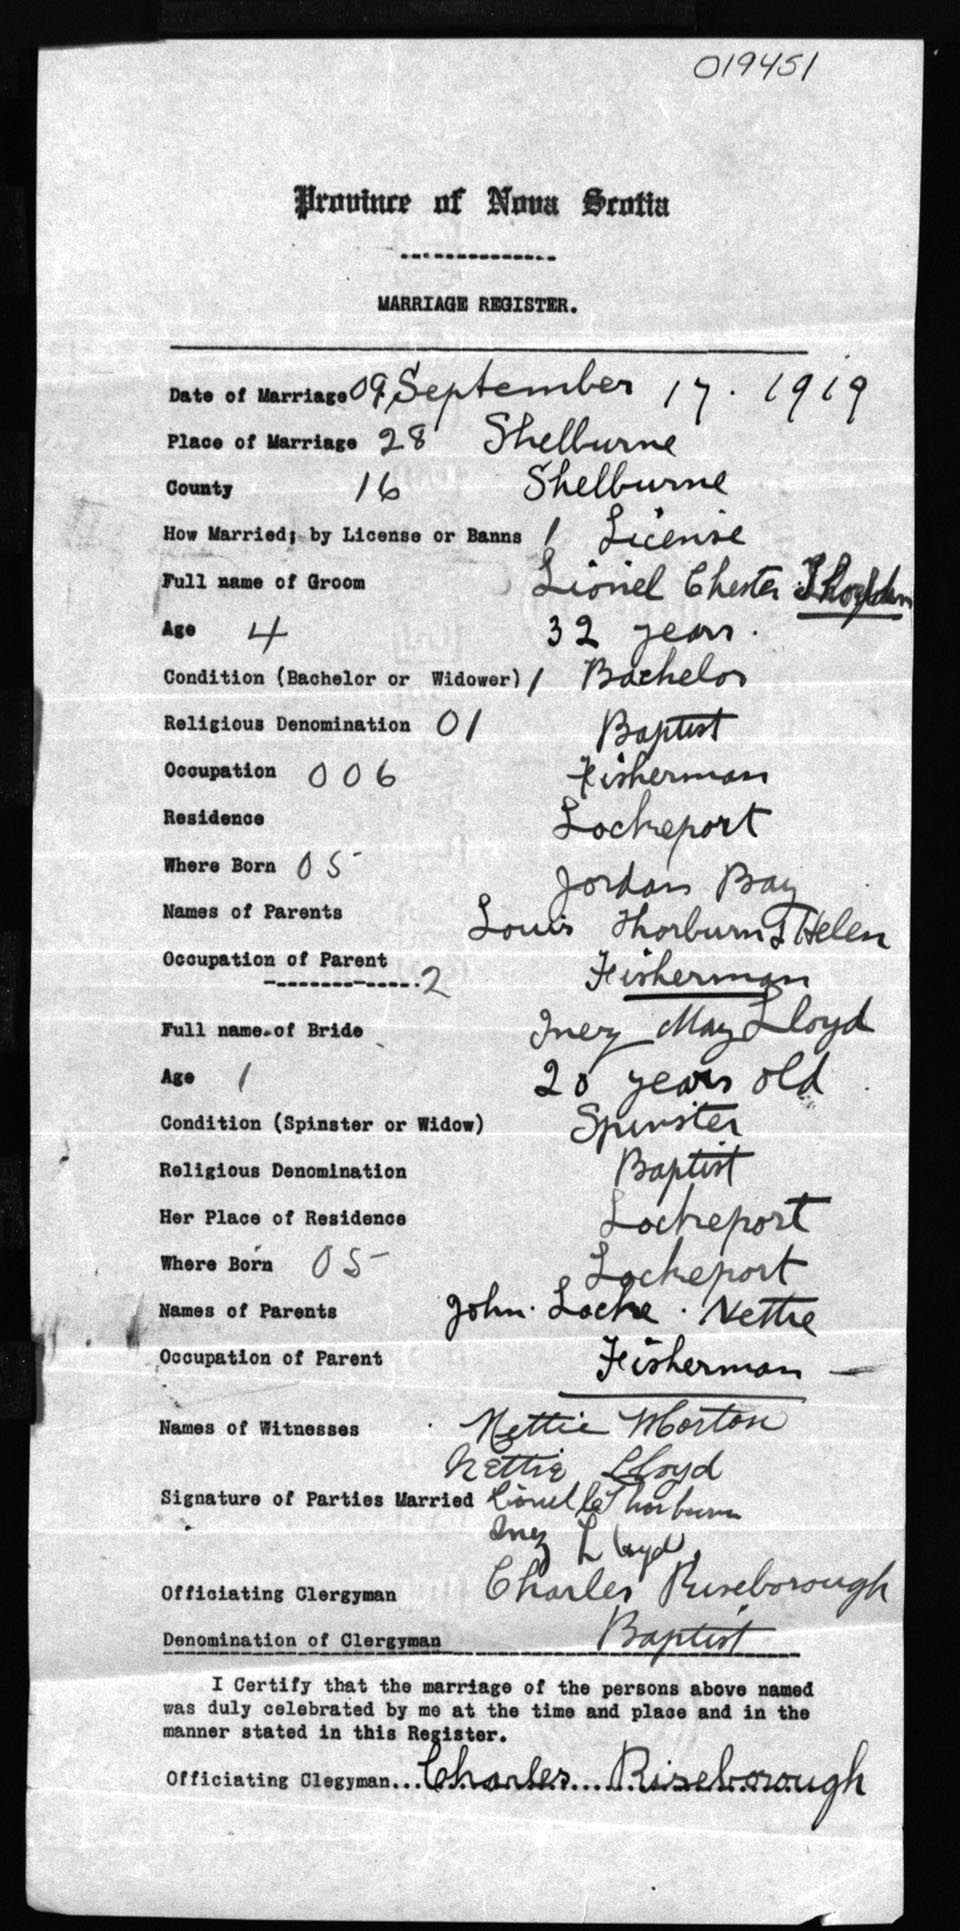 019451
Province of Nova Scotia
MARRIAGE REGISTER.
Date of Marriage 09 September 17. 1919
Place of Marriage 28 Shelburne
County 16 Shelburne
How Married; by License or Banns 1 License
Full name of Groom Lionel Chester
Age 4 32 years.
Condition (Bachelor or Widower) 1 Bachelor
Religious Denomination 01 Baptist
Occupation 006 Fisherman
Residence Lockeport
Where Born 05 Jordan Bay
Names of Parents Louis Thorburn & Helen
Occupation of Parent Fisherman
2
Full name of Bride Inez May Lloyd
Age 1 20 years old
Condition (Spinster or Widow) Spinster
Religious Denomination Baptist
Her Place of Residence Lockeport
Where Born 05 Lockeport
Names of Parents John Locke. Nettie
Occupation of Parent Fisherman
Names of Witnesses Nettie Morton
Nettie Lloyd
Signature of Parties Married Lionel C Thorburn
Inez Lloyd.
Officiating Clergyman Charles Riseborough
Denomination of Clergyman Baptist
I Certify that the marriage of the persons above named
was duly celebrated by me at the time and place and in the
manner stated in this Register.
Officiating Clegyman...Charles Riseborough